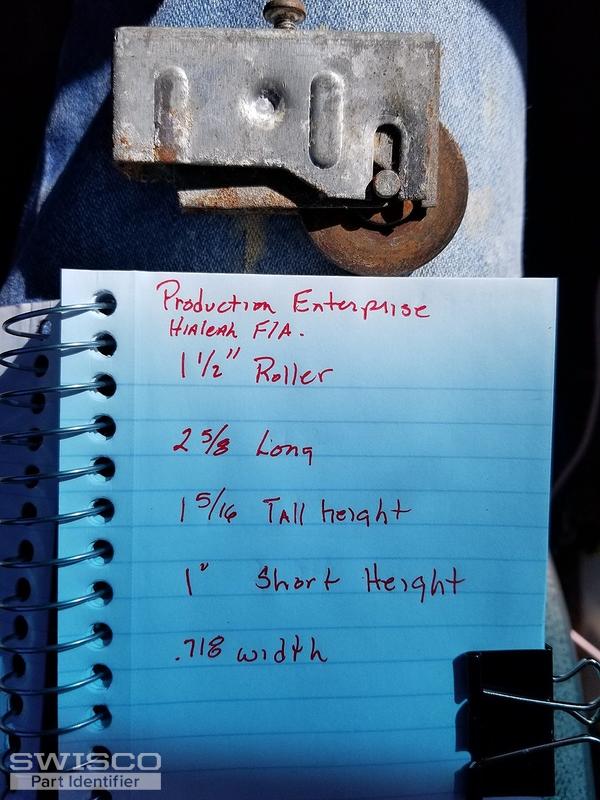 Production Enterprise
Hialeah F/A.
1 1/2" Roller
2 5/8 Long
1 5/16 Tall height
1" Short Height
.718 width
SWISCO
Part Identifier